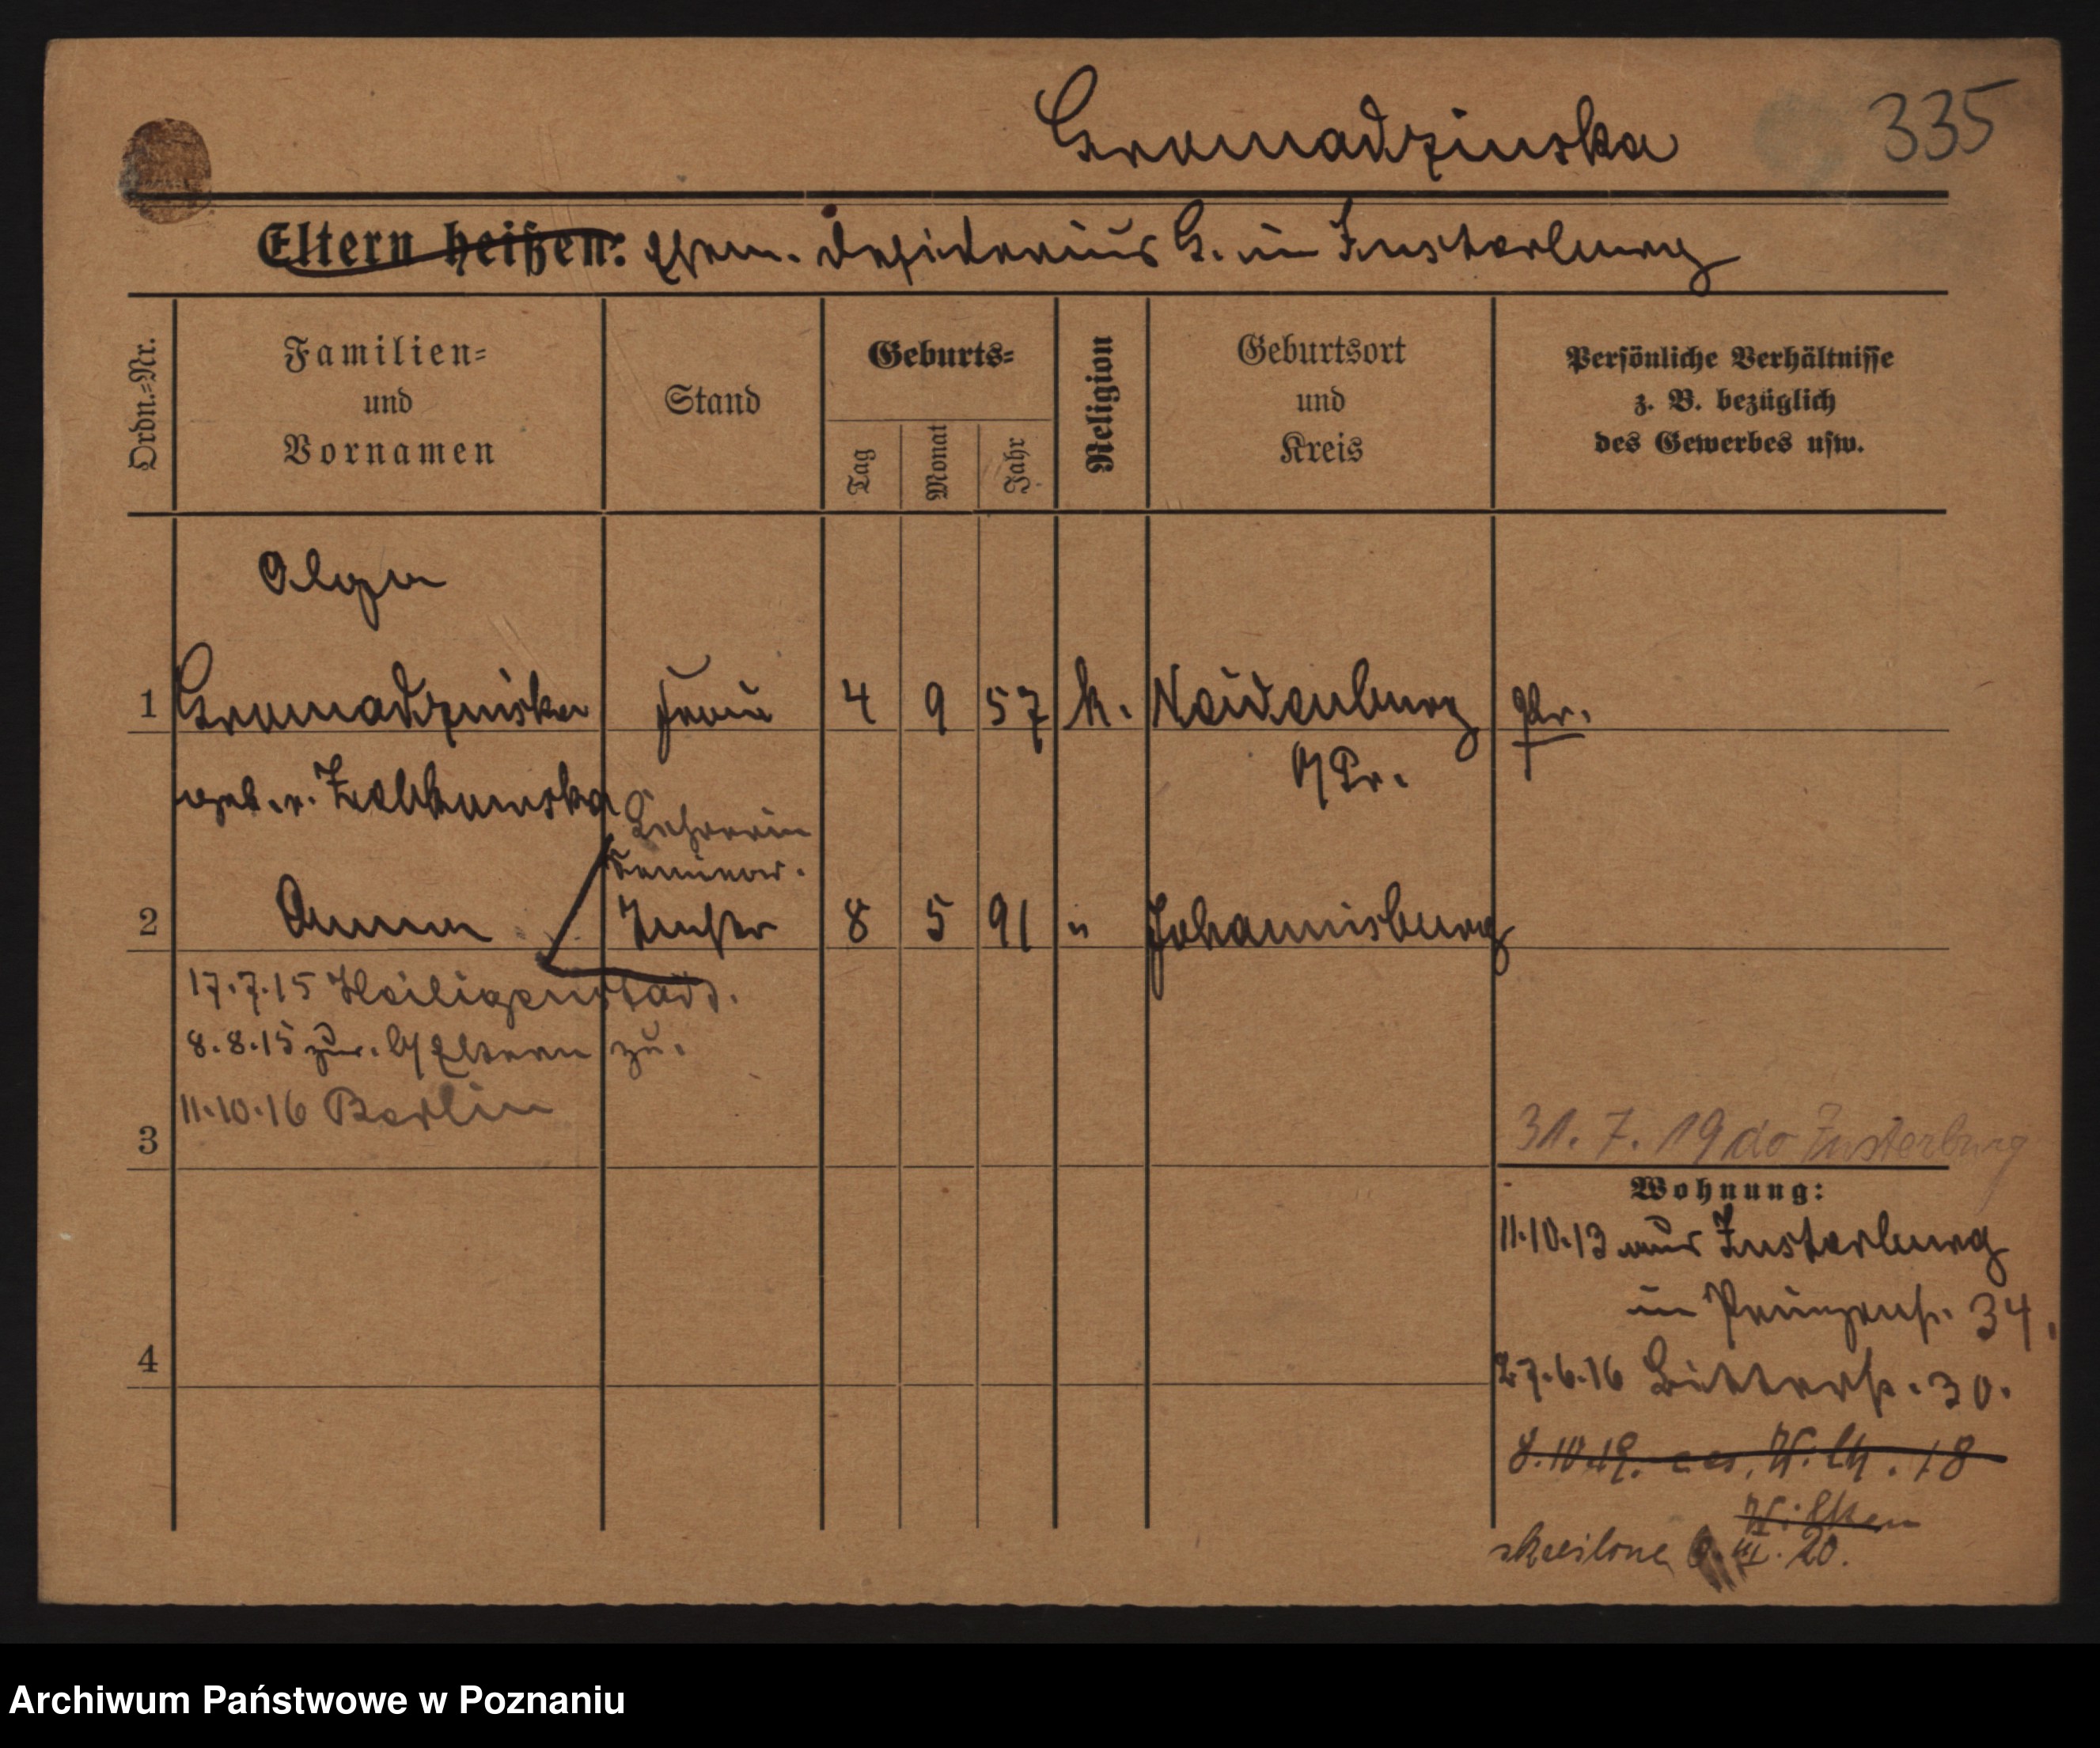 Gromadzinska 335
Eltern heißen: Ehem. Desiderius G. in Insterburg
Ordn.=Nr.
Familien=
und
Vornamen
Stand
Geburts=
Tag
Monat
Jahr
Religion
Geburtsort
und
Kreis
Persönliche Verhältnisse
z. B. bezüglich
des Gewerbes usw.
Olga
1 Gromadzinska Frau 4 9 57 k. Neidenburg Pr.
geb. v. O/Pr.
Lehrerin
Seminar.
2 Anna 8 5 91 " Johannisburg
17.7.15 Heiligenstadt.
8.8.15 zur. Eltern zu.
11.10.16 Berlin
3
31.7.19 do Insterburg
Wohnung:
11.10.13 aus Insterburg
in Prinzenstr. 34.
4
27.6.16 30.
18
skreślone III. 20.
Archiwum Państwowe w Poznaniu